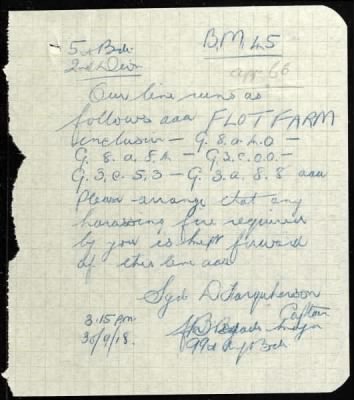 5th Bde
2nd Divn
B.M 45
app 66
Our line runs as
follows aaa FLOT FARM
inclusive — G. 8. a. 4. 0 —
G. 8. a. 5. 4 — G. 3. c. 0. 0. —
G. 3. c. 5. 3 — G. 3. a. 8. 8 aaa
Please arrange that any
harassing fire required
by you is kept forward
of this line aaa
Sgd D Farquharson
Captain
3.15 pm
30/9/18.
99th Inf Bde